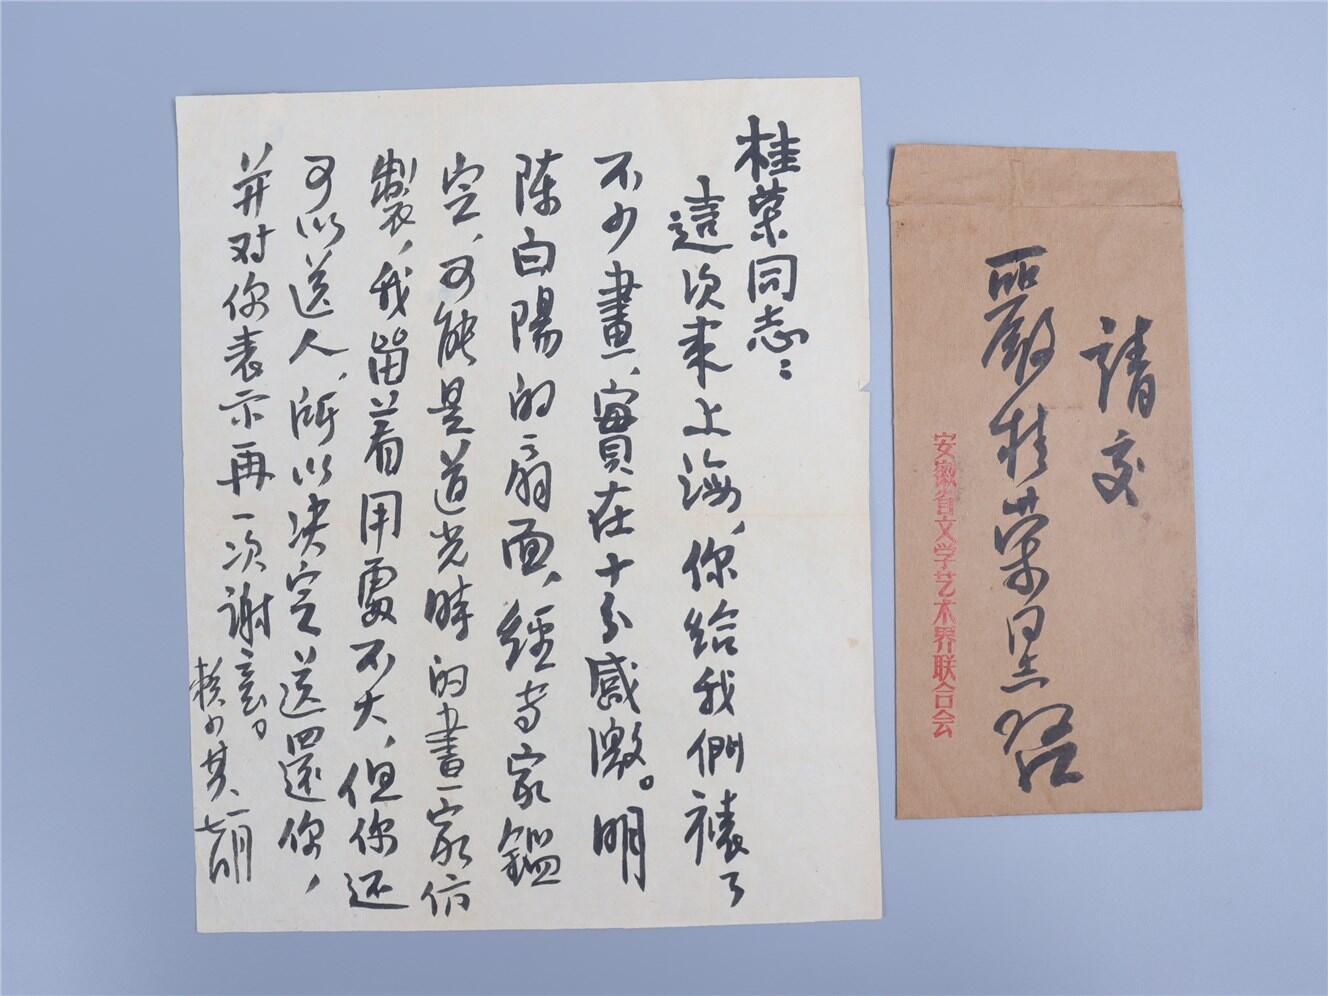 桂荣同志：
這次来上海，你给我們裱了
不少畫，實在十分感激。明
陈白陽的扇面，經专家鑑
定，可能是道光時的畫家仿
製，我留着用處不大，但你还
可以送人，所以决定送回还你，
并对你表示再一次谢意。
赖少其 一月
請交
嚴桂荣同志 
安徽省文学艺术界联合会